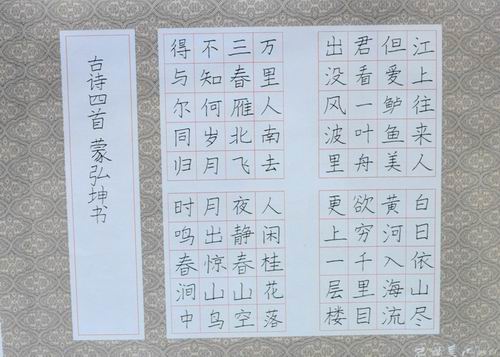 江上往来人
但爱鲈鱼美
君看一叶舟
出没风波里
白日依山尽
黄河入海流
欲穷千里目
更上一层楼
万里人南去
三春雁北飞
不知何岁月
得与尔同归
人闲桂花落
夜静春山空
月出惊山鸟
时鸣春涧中
古诗四首 蒙弘坤书